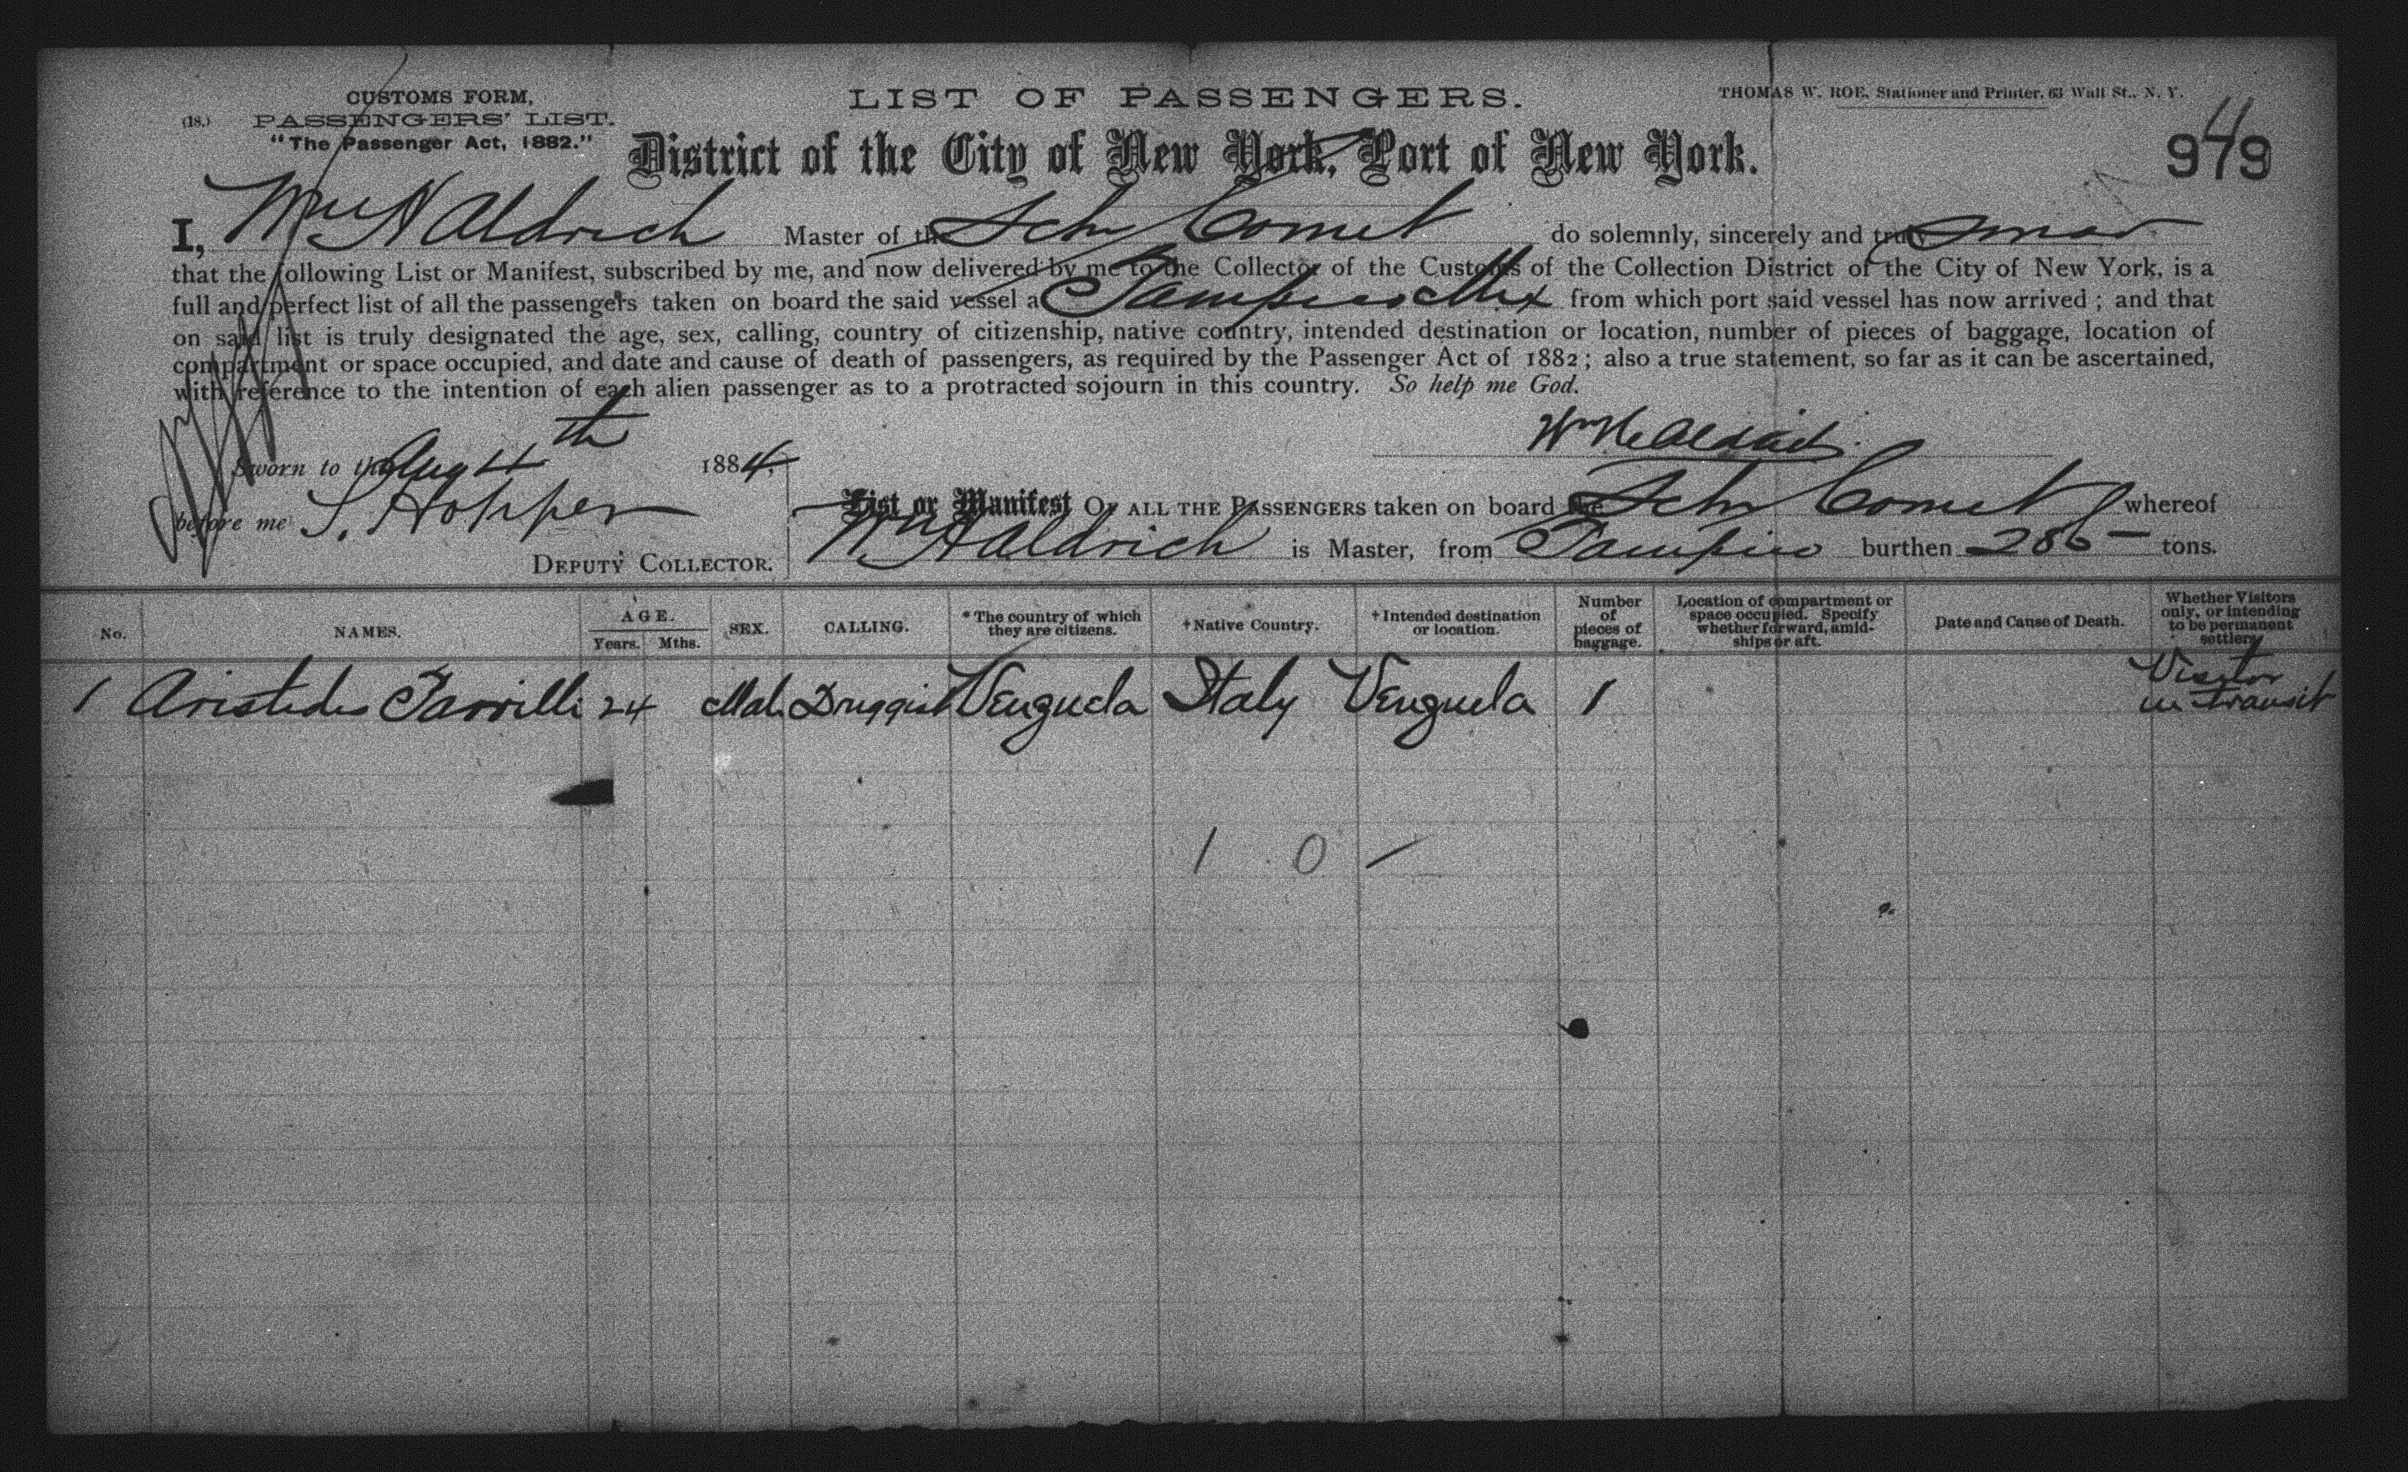 CUSTOMS FORM,
(18.) PASSENGERS' LIST.
"The Passenger Act, 1882."
LIST OF PASSENGERS.
THOMAS W. ROE, Stationer and Printer, 63 Wall St., N. Y.
District of the City of New York, Port of New York.
979
I, Wm H Aldrich Master of the Schr Comet do solemnly, sincerely and truly swear
that the following List or Manifest, subscribed by me, and now delivered by me to the Collector of the Customs of the Collection District of the City of New York, is a
full and perfect list of all the passengers taken on board the said vessel a Tampico Mex from which port said vessel has now arrived ; and that
on said list is truly designated the age, sex, calling, country of citizenship, native country, intended destination or location, number of pieces of baggage, location of
compartment or space occupied, and date and cause of death of passengers, as required by the Passenger Act of 1882 ; also a true statement, so far as it can be ascertained,
with reference to the intention of each alien passenger as to a protracted sojourn in this country. So help me God.
Wm H Aldrich
Sworn to this Aug 4th 1884,
before me S. Hopper
DEPUTY COLLECTOR.
List or Manifest OF ALL THE PASSENGERS taken on board the Schr Comet whereof
Wm H Aldrich is Master, from Tampico burthen 286 — tons.
No. NAMES. AGE. Years. Mths. SEX. CALLING. *The country of which they are citizens. †Native Country. †Intended destination or location. Number of pieces of baggage. Location of compartment or space occupied. Specify whether forward, amidships or aft. Date and Cause of Death. Whether Visitors only, or intending to be permanent settlers.
1 Aristides 24 Male Druggist Venzuela Italy Venzuela 1 Visitor in transit
1 0 —